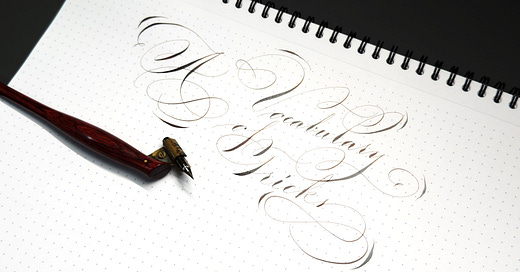 A
Vocabulary
of
Tricks